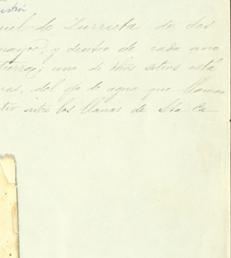 uel de Zurrieta de dos
mayor) y dentro de cada uno
tierra; uno de dhos sitios está
as, del ojo de agua que llaman
tio entre los llanos de Sta Ca